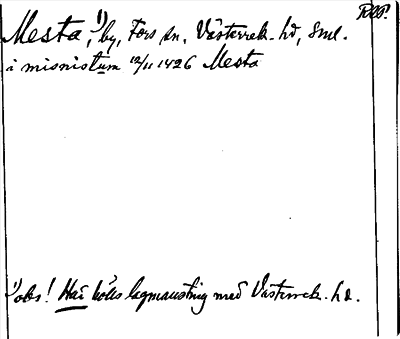 RCB.
Mesta,¹⁾ by, Fors sn, Västerrek. hd, Sml.
i misnistum 12/11 1426 Mesta
¹⁾obs! Här hölls lagmansting med Västerrek. hd.